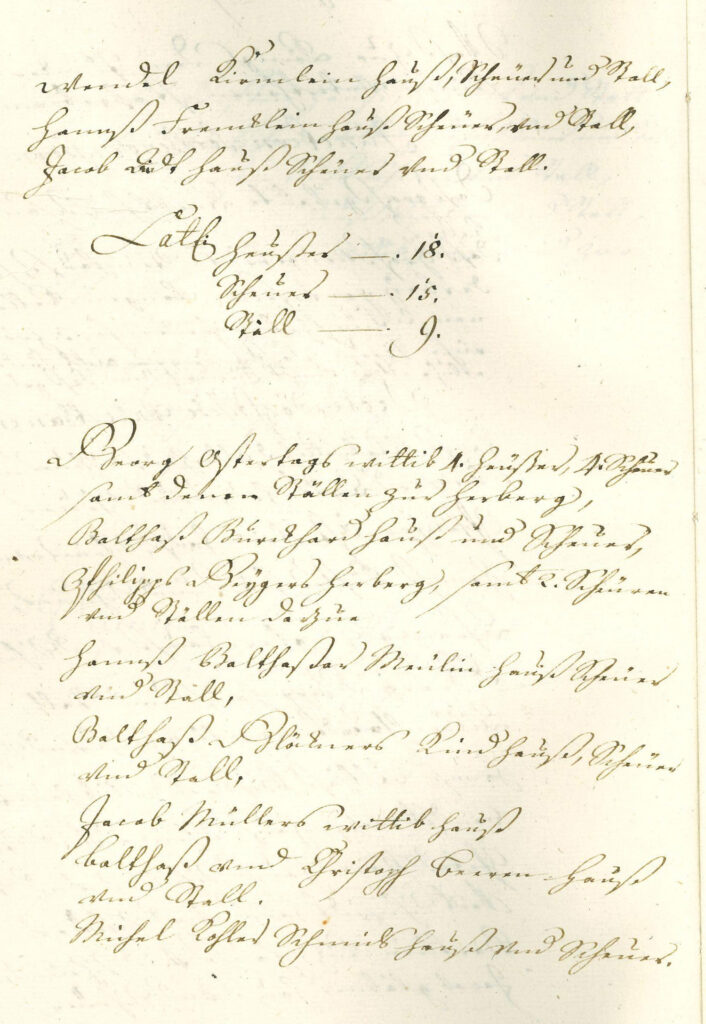 Wendel Kirnlein Hauß, Scheuer und Stall,
Hannß Fremklein Hauß Scheuer, vnd Stall,
Jacob Hauß Scheuer vnd Stall.
Heußer — . 18.
Scheuer — . 15.
Ställ — . 9.
Georg Ostertags wittib 4. Heußer, 4. Scheuer
samt denen Ställen zur Herberg,
Balthaß Bürckhard Hauß und Scheuer,
Philipps Geygers Herberg, samt 2. Scheuren
vnd Ställen darzue
Hannß Balthaßar Meülin Hauß Scheuer
vnd Stall,
Balthaß Kind Hauß, Scheuer
vnd Stall,
Jacob Müllers wittib Hauß
Balthaß vnd Christoph Beeren Hauß
vnd Stall.
Michel Kohler Schmids Hauß vnd Scheuer.